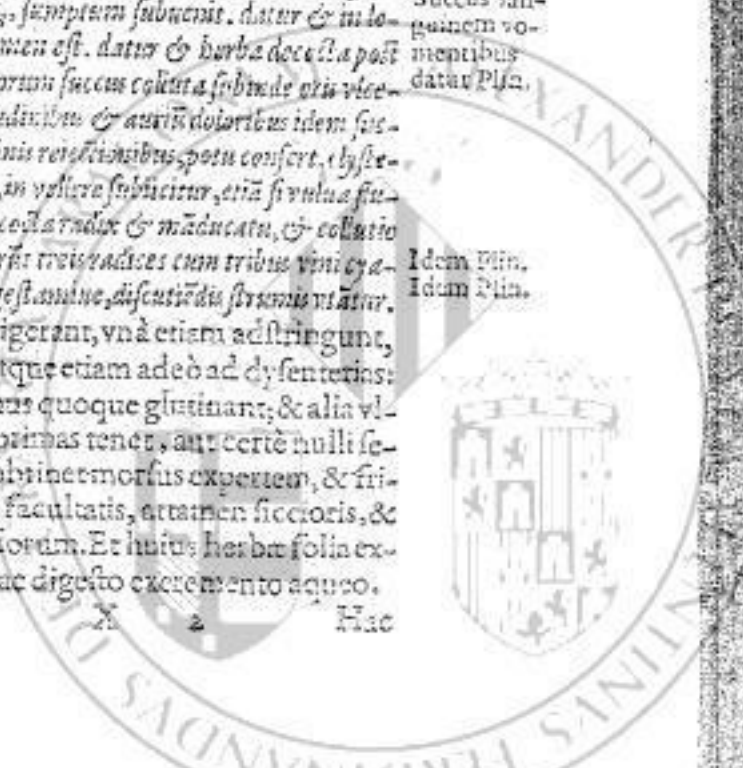 sumptum subuenit. datur & in lo-
men est. datur & herba decocta post
orum succus coliuta subinde oris vlce-
& auriũ doloribus idem suc-
potu confert. clyste-
in vellere subiicitur, etiã si vulua flu-
cocta radix & mãducatu, & collutio
treis radices cum tribus vini cya-
gestamine, discutiẽdis strumis vtãtur.
igerant, vnà etiam adstringunt,
tque etiam adeò ad dysenterias:
quoque glutinant; & alia vl-
primas tenet, aut certè nulli se-
morsus expertem, & fri-
facultatis, attamen siccioris, &
Et huius herbæ folia ex-
digesto excremento aqueo.
X 2 Hac
Succus san-
guinem vo-
mentibus
datur Plin.
Idem Plin.
Idem Plin.